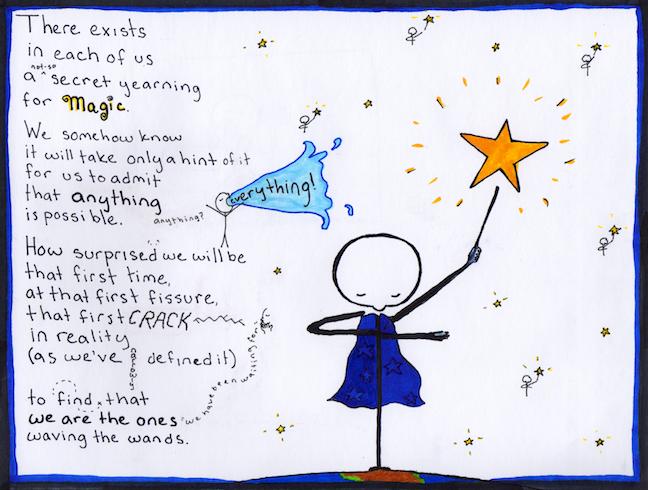 There exists
in each of us
a not-so secret yearning
for Magic.
We somehow know
it will take only a hint of it
for us to admit
that anything
is possible.
anything?
everything!
How surprised we will be
that first time,
at that first fissure,
that first CRACK
in reality
(as we've narrowly defined it)
to find that
we are the ones we have been waiting for
waving the wands.